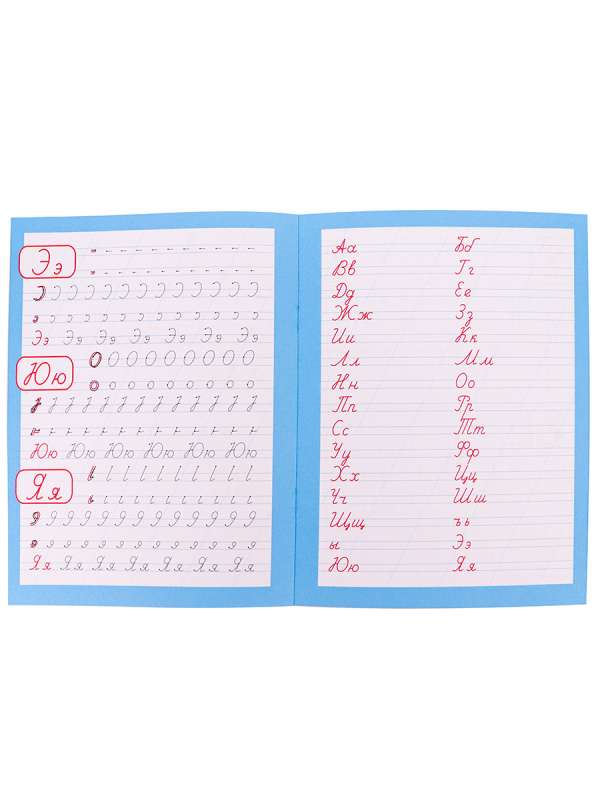 Ээ
Ээ Ээ Ээ Ээ Ээ Ээ Ээ
Юю
Юю Юю Юю Юю Юю Юю
Яя
Яя Яя Яя Яя Яя Яя Яя Яя
Аа Бб
Вв Гг
Дд Ее
Жж Зз
Ии Кк
Лл Мм
Нн Оо
Пп Рр
Сс Тт
Уу Фф
Хх Цц
Чч Шш
Щщ ъь
ы Ээ
Юю Яя